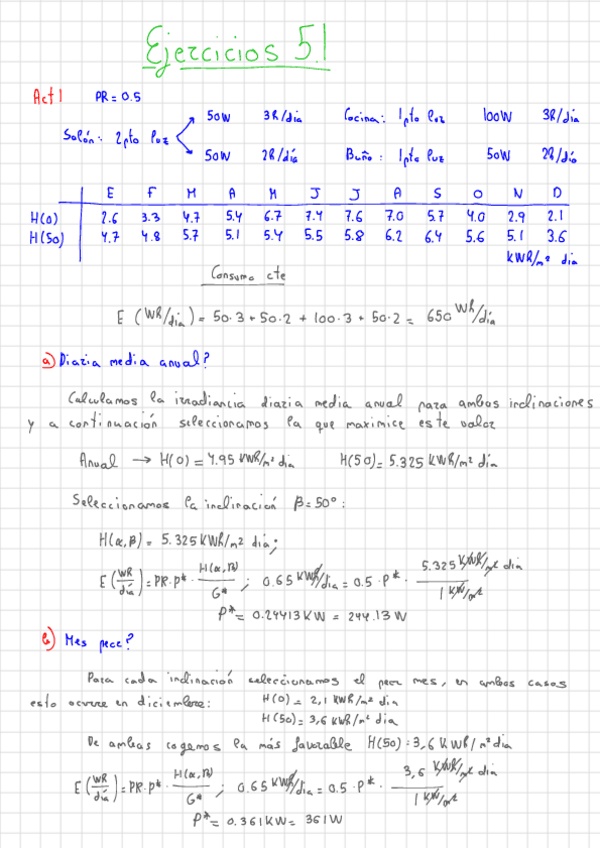 Ejercicios 5.1
Act 1 PR = 0.5
Salón: 2pto luz 50W 3h/día Cocina: 1pto luz 100W 3h/día
50W 2h/día Baño: 1pto luz 50W 2h/día
E F M A M J J A S O N D
H(0) 2.6 3.3 4.7 5.4 6.7 7.4 7.6 7.0 5.7 4.0 2.9 2.1
H(50) 4.7 4.8 5.7 5.1 5.4 5.5 5.8 6.2 6.4 5.6 5.1 3.6
kWh/m² dia
Consumo cte
E (Wh/dia) = 50·3 + 50·2 + 100·3 + 50·2 = 650 Wh/día
a) Diaria media anual?
Calculamos la irradiancia diaria media anual para ambas inclinaciones
y a continuación seleccionamos la que maximice este valor
Anual → H(0) = 4.95 kWh/m² dia H(50) = 5.325 kWh/m² día
Seleccionamos la inclinación β = 50º:
H(α,β) = 5.325 kWh/m² dia;
E (Wh/día) = PR·P* · H(α,β)/G* ; 0.65 kWh/dia = 0.5 · P* · 5.325 kWh/m² dia / 1 kW/m²
P* = 0.24413 KW = 244.13 W
b) Mes peor?
Para cada inclinación seleccionamos el peor mes, en ambos casos
esto ocurre en diciembre: H(0) = 2,1 kWh/m² dia
H(50) = 3,6 kWh/m² dia
De ambas cogemos la más favorable H(50) = 3,6 kWh/m² dia
E (Wh/día) = PR·P* · H(α,β)/G* ; 0.65 kWh/dia = 0.5 · P* · 3,6 kWh/m² dia / 1 kW/m²
P* = 0.361 KW = 361 W